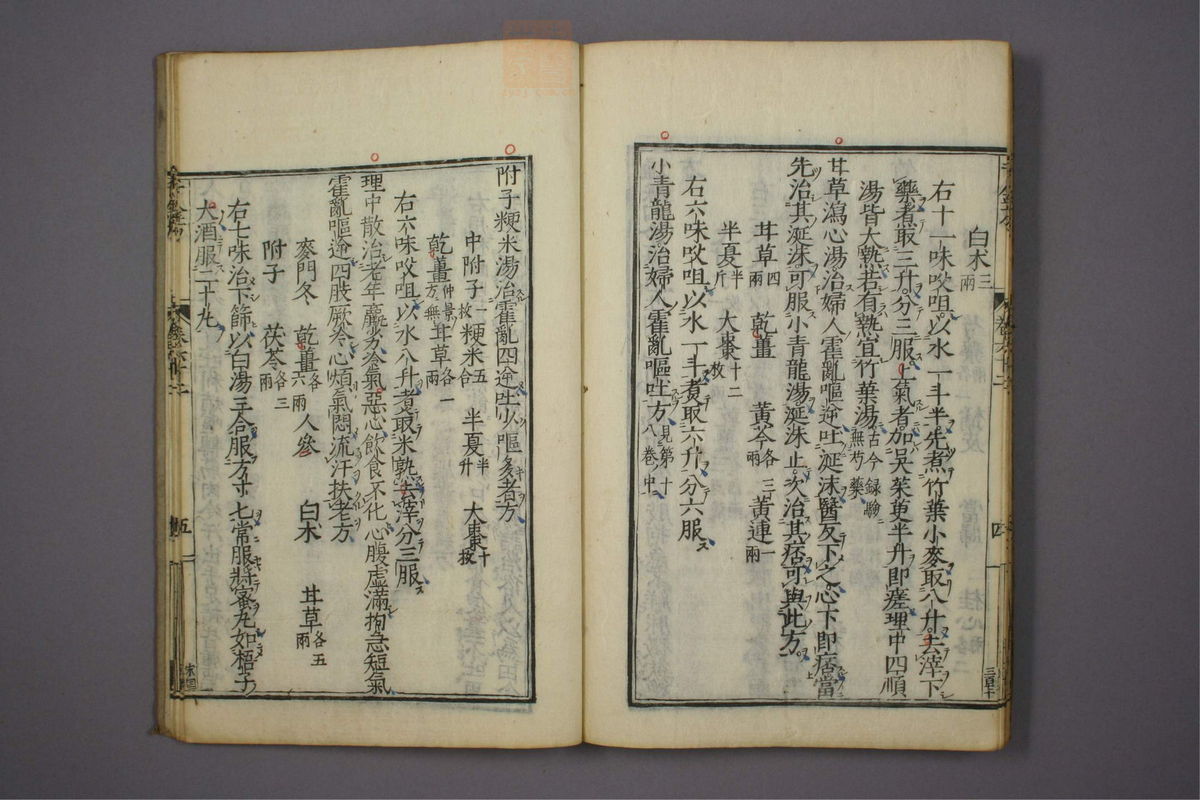 白朮三兩
右十一味㕮咀以水一斗半先煮竹葉小麥取八升去滓下
藥煮取三升分三服上氣者加吳茱萸半升即瘥理中四順
湯皆大熱若有熱宜竹葉湯古今録驗無芍藥
甘草瀉心湯治婦人霍亂嘔逆吐涎沫醫反下之心下即痞當
先治其涎沫可服小青龍湯涎沫止次治其痞可與此方
甘草四兩 乾薑 黃芩各三兩 黃連一兩
半夏半斤 大棗十二枚
右六味㕮咀以水一斗煮取六升分六服
小青龍湯治婦人霍亂嘔吐方見第十八卷中
四
附子粳米湯治霍亂四逆吐少嘔多者方
中附子一枚 粳米五合 半夏半升 大棗十枚
乾薑仲景方無 甘草各一兩
右六味㕮咀以水八升煮取米熟去滓分三服
理中散治老年羸劣冷氣惡心飲食不化心腹虛滿拘急短氣
霍亂嘔逆四肢厥冷心煩氣悶流汗扶老方
麥門冬 乾薑各六兩 人參 白朮 甘草各五兩
附子 茯苓各三兩
右七味治下篩以白湯三合服方寸匕常服將蜜丸如梧子
大酒服二十丸
五